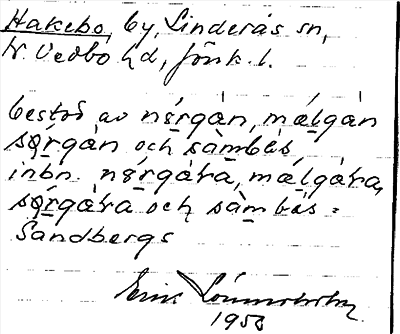 Hakebo, by, Linderås sn,
N. Vedbo hd, Jönk. l.
bestod av nę́rgån, mǽlgån
sǫ́rgån och sàmbås
inbn. nę́rgåra, mǽlgåra,
sǫ́rgåra och sàmbås =
Sandbergs
Erik
1958